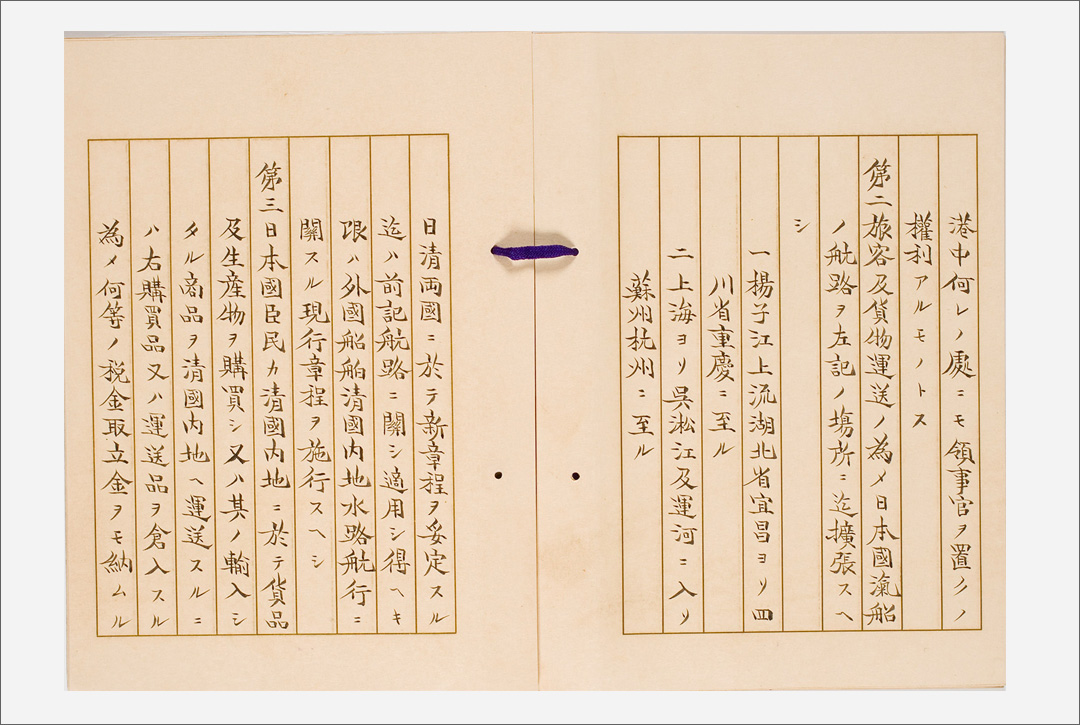 港中何レノ處ニモ領事官ヲ置クノ
權利アルモノトス
第二旅客及貨物運送ノ為メ日本國滊船
ノ航路ヲ左記ノ塲所ニ迄擴張スヘ
シ
一揚子江上流湖北省宜昌ヨリ四
川省重慶ニ至ル
二上海ヨリ呉淞江及運河ニ入リ
蘇州杭州ニ至ル
日清両國ニ於テ新章程ヲ妥定スル
迄ハ前記航路ニ關シ適用シ得ヘキ
限ハ外國船舶清國内地水路航行ニ
關スル現行章程ヲ施行スヘシ
第三日本國臣民カ清國内地ニ於テ貨品
及生産物ヲ購買シ又ハ其ノ輸入シ
タル商品ヲ清國内地ヘ運送スルニ
ハ右購買品又ハ運送品ヲ倉入スル
為メ何等ノ税金取立金ヲモ納ムル